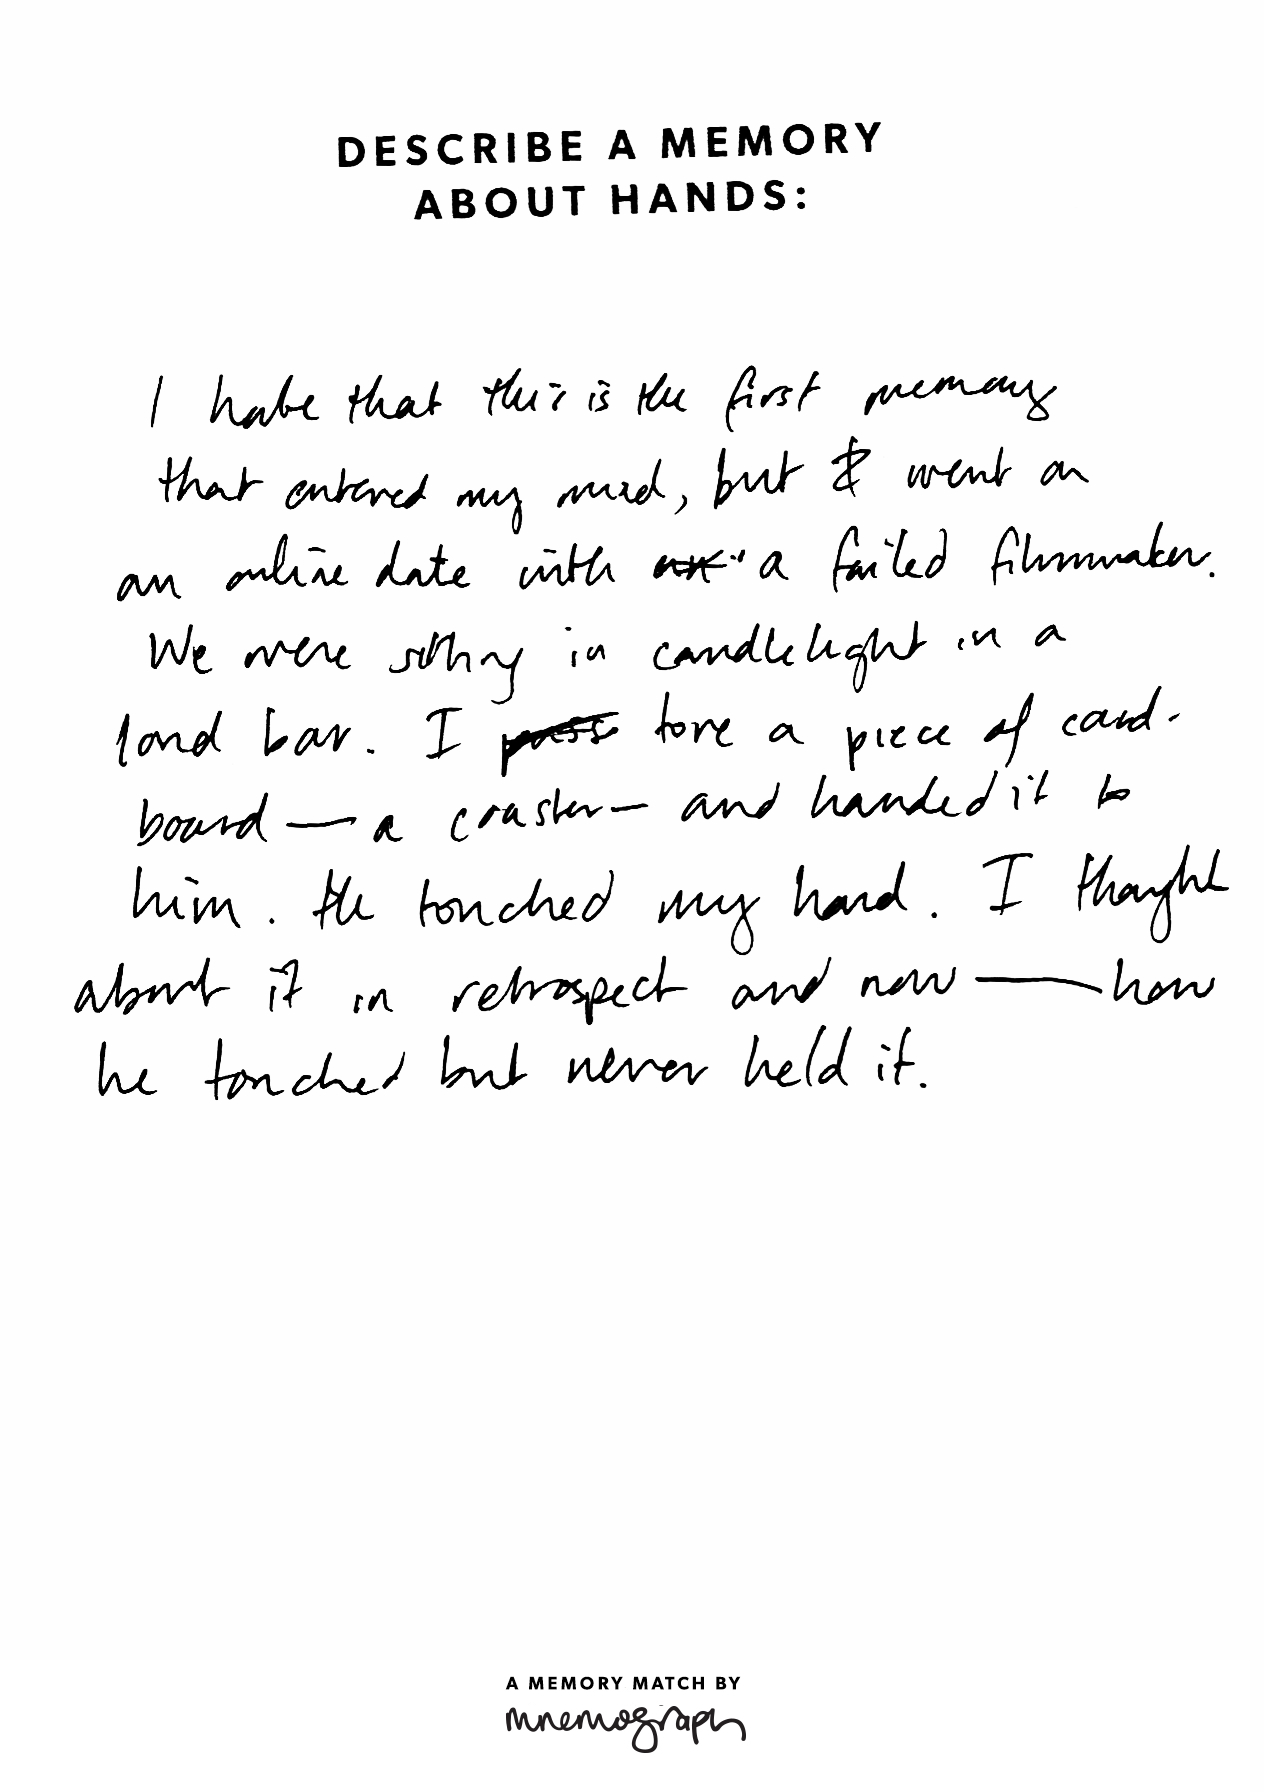 DESCRIBE A MEMORY
ABOUT HANDS:
I hate that this is the first memory
that entered my mind, but I went on
an online date with a failed filmmaker.
We were sitting in candlelight in a
loud bar. I tore a piece of card-
board — a coaster — and handed it to
him. He touched my hand. I thought
about it in retrospect and now — how
he touched but never held it.
A MEMORY MATCH BY
mnemograph